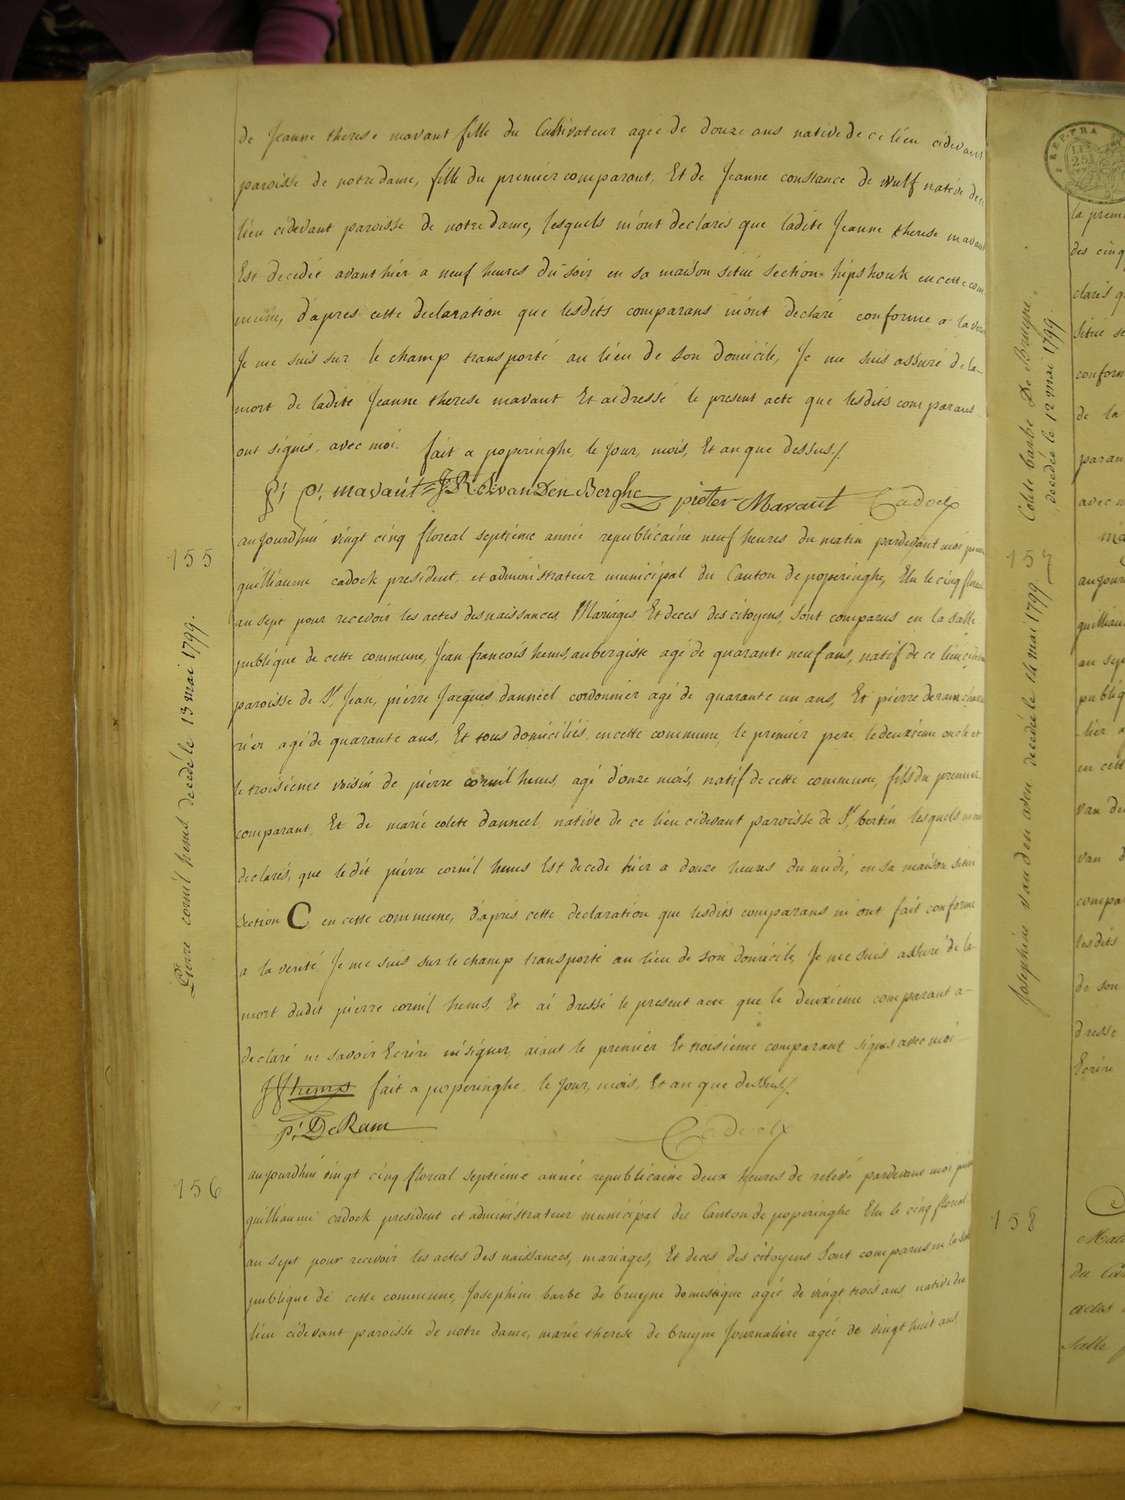 de Jeanne therese mavant fille du Cultivateur agée de douze ans native de ce lieu cidevant
paroisse de notre dame, fille du premier comparant, Et de Jeanne constance de Wulf native de ce
lieu cidevant paroisse de notre dame, lesquels m'ont declarés que ladite Jeanne therese mavant
Est decedée avant hier a neuf heures du soir en sa maison situé section hipshouk en cette com
mune, d'apres cette declaration que lesdits comparans m'ont declaré conforme a la verité
Je me suis sur le champ transporté au lieu de son domicile, Je me suis assuré de la
mort de ladite Jeanne therese mavant Et ai dressé le present acte que lesdits comparans
ont signés avec moi. fait a poperinghe, le jour, mois, Et an que dessus/.
P: J: mavaut van Den Berghe pieter Mavaut Cadock
155
aujourdhui vingt cinq floreal septieme année republicaine neuf heures du matin pardevant moi
guilliaume cadock president et administrateur municipal du Canton de poperinghe, Elu le cinq floreal
an sept pour recevoir les actes des naissances, Mariages, Et deces des citoyens, sont comparus en la salle
publique de cette commune, Jean francois hems aubergiste agé de quarante neuf ans, natif de ce lieu cidevant
paroisse de St. Jean, pierre Jacques danneel cordonnier agé de quarante un ans, Et pierre deram
rier agé de quarante ans, Et tous domiciliés, en cette commune, le premier pere, le deuxieme oncle et
le troisieme voisin de pierre cornil hems, agé d'onze mois, natif de cette commune, fils du premier
comparant, Et de marie colete danneel, native de ce lieu cidevant paroisse de St. bertin lesquels m'ont
declarés, que le dit pierre cornil hems Est decedé hier a douze heures du midi, en sa maison située
section C en cette commune, d'après cette declaration que lesdits comparans m'ont fait conforme
a la verité, Je me suis sur le champ transporté au lieu de son domicile, Je me suis assuré de la
mort dudit pierre cornil hems, Et ai dressé le present acte que le deuxieme comparant a
declaré ne savoir Ecrire ni signer, aiant le premier Et troisieme comparant signés avec moi
JF hems fait a poperinghe, le jour, mois, Et an que dessus/.
p: De Ram Cadock
156
aujourdhui vingt cinq floreal septieme année republicaine deux heures de relevé pardevant moi
guilliaume cadock president et administrateur municipal du Canton de poperinghe Elu le cinq floreal
an sept pour recevoir les actes des naissances, mariages, Et deces des citoyens sont comparus en la salle
publique de cette commune, Josephine barbe de bruyne domestique agée de vingt trois ans native du
lieu cidevant paroisse de notre dame, marie therese de bruyne Journaliere agée de vingt huit ans
Pierre cornil hems decedé le 13 mai 1799.
Colete barbe De Bruyne.
decedée le 12 mai 1799.
157
Josephine vanden decedée le 14 mai 1799
158
REP. FRA
la premi
des cinq
clarés q
situé se
conform
de la
paran
avec m
aujour
guilliau
an sep
publiq
lier a
en cett
van de
van d
compar
lesdits
de son
dresse
Ecrire
du Can
actes
salle p